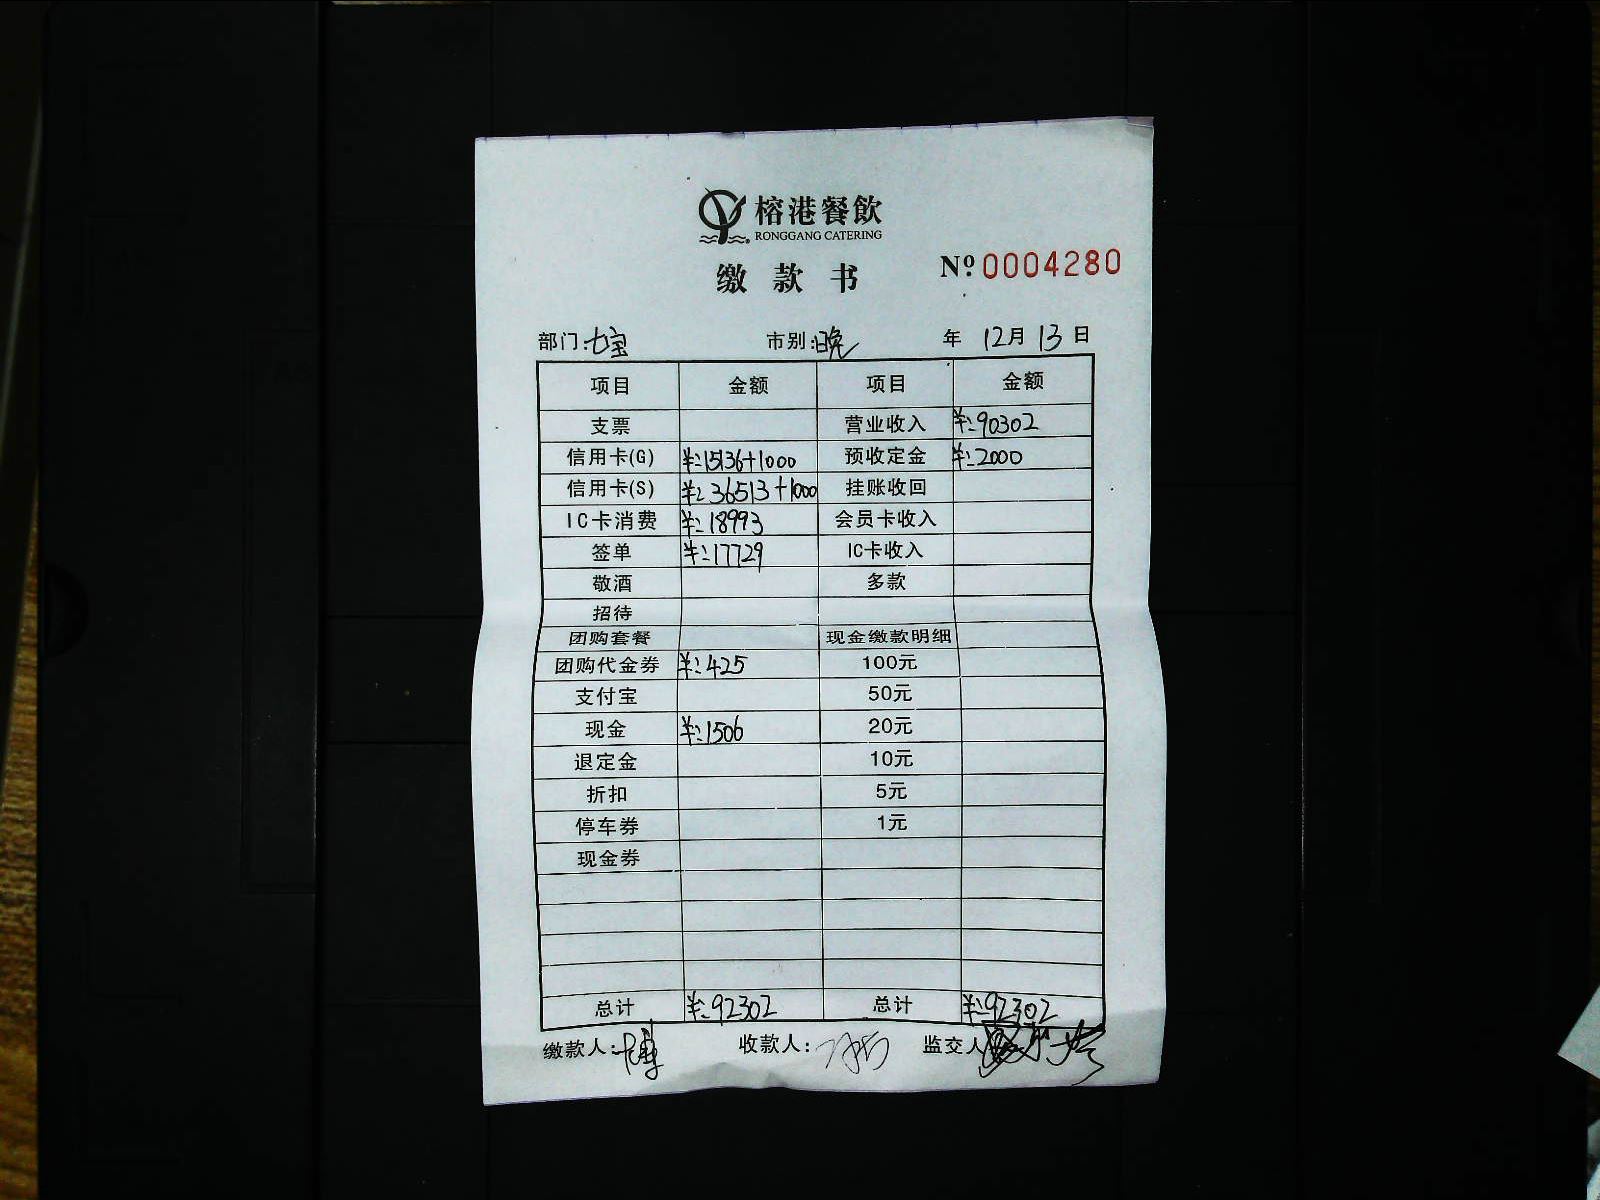 榕港餐飲
RONGGANG CATERING
缴款书 Nº 0004280
部门:七宝 市别:晚 年 12月 13日
项目 金额 项目 金额
支票 营业收入 ¥:90302
信用卡(G) ¥:15136+1000 预收定金 ¥:2000
信用卡(S) ¥:36513+1000 挂账收回
IC卡消费 ¥:18993 会员卡收入
签单 ¥:17729 IC卡收入
敬酒 多款
招待
团购套餐 现金缴款明细
团购代金券 ¥:425 100元
支付宝 50元
现金 ¥:1506 20元
退定金 10元
折扣 5元
停车券 1元
现金券
总计 ¥:92302 总计 ¥:92302
缴款人: 收款人: 监交人